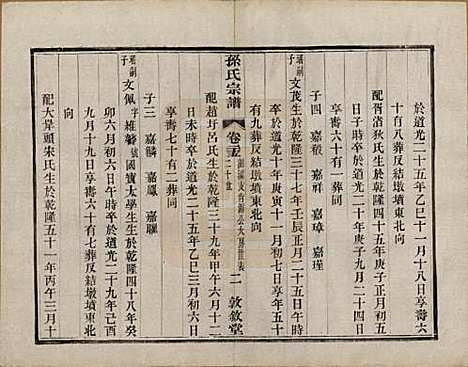 於道光二十五年乙巳十一月十八日享壽六
十有八葬反結墩墳東北向
配胥渚狄氏生於乾隆四十五年庚子正月初五
日卒於道光二十年庚子九月二十四日
享壽六十有一葬同
子四 嘉穀 嘉祥 嘉璋 嘉瑾
子 文茂生於乾隆三十七年壬辰正月二十五日午時
卒於道光十年庚寅十一月初七日享年五十
有九葬反結墩墳東北向
孫氏宗譜
卷五
二 敦敘堂
配趙圩呂氏生於乾隆三十九年甲午六月十二
日未時卒於道光二十五年乙巳三月初六日
享壽七十有二葬同
子三 嘉麟 嘉鳳 嘉驪
子 文佩 字 號國寶太學生生於乾隆四十八年癸
卯六月初六日午時卒於道光二十九年己酉
九月十九日享壽六十有七葬反結墩墳東北
向
配大昇頭朱氏生於乾隆五十一年丙午三月十